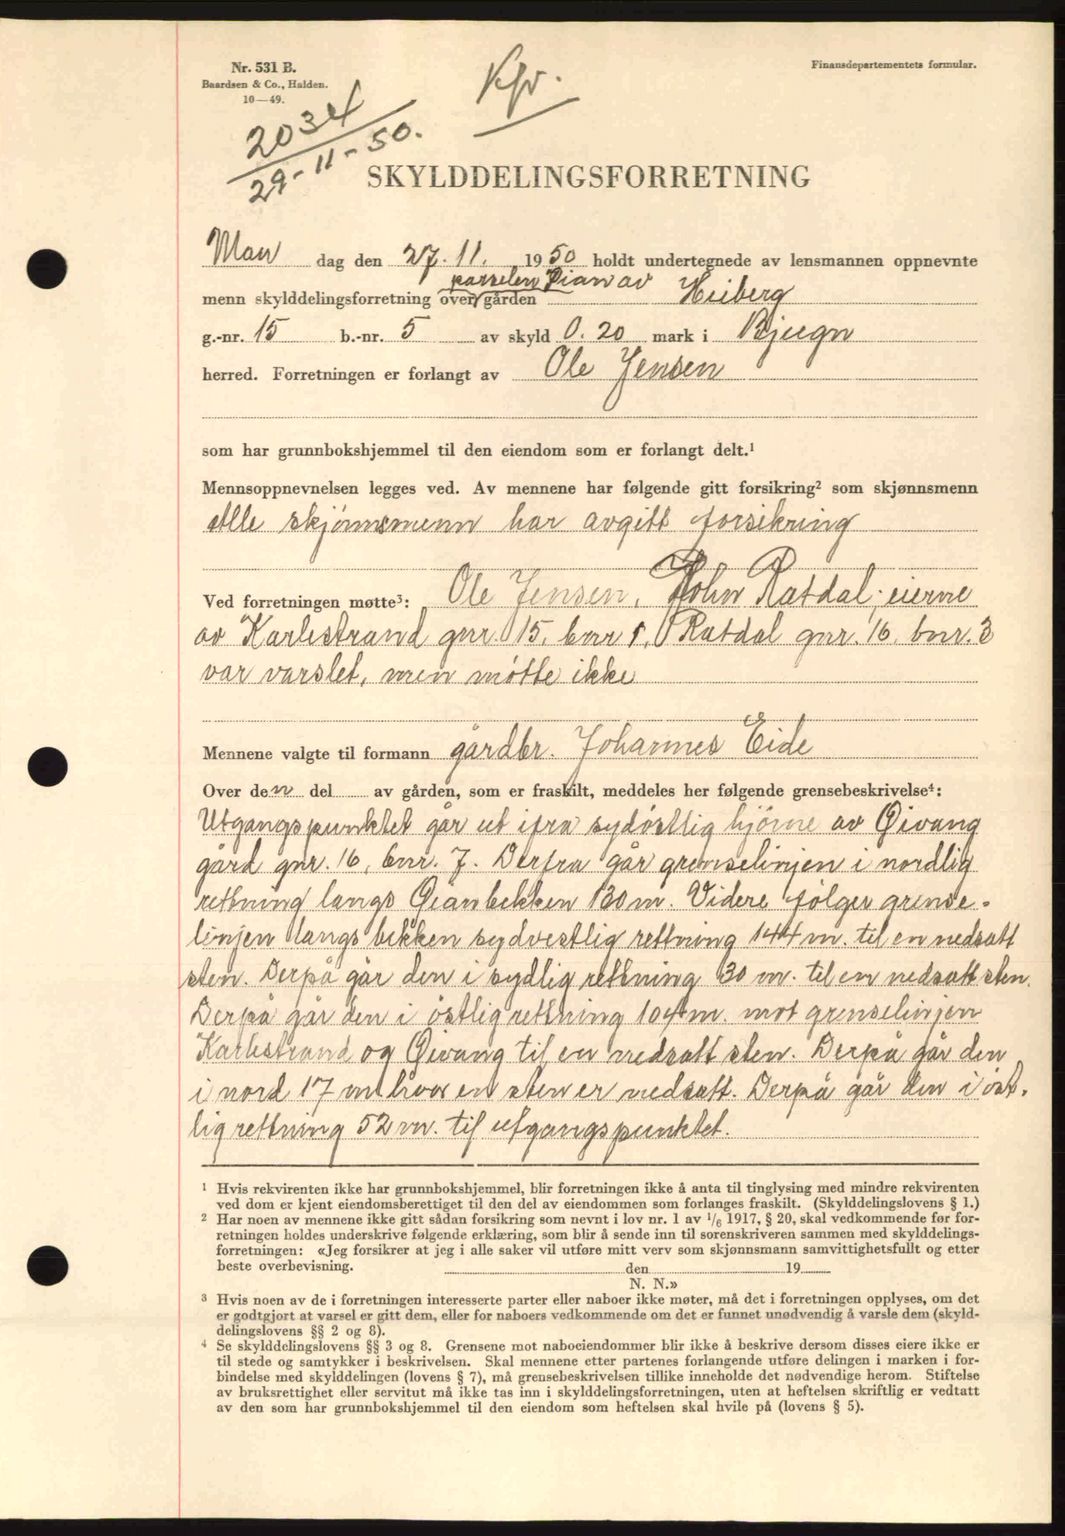 Nr. 531 B.
Baardsen & Co., Halden.
10—49.
Kfr.
Finansdepartementets formular.
2034
29-11-50.
SKYLDDELINGSFORRETNING
Man dag den 27. 11. 1950 holdt undertegnede av lensmannen oppnevnte
parselen Øian av
menn skylddelingsforretning over gården Heiberg
g.-nr. 15 b.-nr. 5 av skyld 0.20 mark i Bjugn
herred. Forretningen er forlangt av Ole Jensen
som har grunnbokshjemmel til den eiendom som er forlangt delt.¹
Mennsoppnevnelsen legges ved. Av mennene har følgende gitt forsikring² som skjønnsmenn
Alle skjönnsmenn har avgitt forsikring
Ved forretningen møtte³: Ole Jensen, John Rætdal; eierne
av Karlestrand gnr. 15, bnr 1, Rætdal gnr. 16, bnr. 3
var varslet, men møtte ikke
Mennene valgte til formann gårdbr. Johannes Eide
Over den del av gården, som er fraskilt, meddeles her følgende grensebeskrivelse⁴:
Utgangspunktet går ut ifra sydöstlig hjörne av Øivang
gård gnr. 16, bnr. 7. Derfra går grenselinjen i nordlig
rettning langs Øianbekken 130 m. Videre følger grense-
linjen langs bekken sydvestlig rettning 144 m. til en nedsatt
sten. Derpå går den i sydlig rettning 30 m. til en nedsatt sten.
Derpå går den i östlig rettning 104 m. mot grenselinjen
Karlestrand og Øivang til en nedsatt sten. Derpå går den
i nord 17 m hvor en sten er nedsatt. Derpå går den i öst-
lig rettning 52 m. til utgangspunktet.
¹ Hvis rekvirenten ikke har grunnbokshjemmel, blir forretningen ikke å anta til tinglysing med mindre rekvirenten
ved dom er kjent eiendomsberettiget til den del av eiendommen som forlanges fraskilt. (Skylddelingslovens § 1.)
² Har noen av mennene ikke gitt sådan forsikring som nevnt i lov nr. 1 av 1/6 1917, § 20, skal vedkommende før for-
retningen holdes underskrive følgende erklæring, som blir å sende inn til sorenskriveren sammen med skylddelings-
forretningen: «Jeg forsikrer at jeg i alle saker vil utføre mitt verv som skjønnsmann samvittighetsfullt og etter
beste overbevisning. den 19
N. N.»
³ Hvis noen av de i forretningen interesserte parter eller naboer ikke møter, må det i forretningen opplyses, om det
er godtgjort at varsel er gitt dem, eller for naboers vedkommende om det er funnet unødvendig å varsle dem (skyld-
delingslovens §§ 2 og 8).
⁴ Se skylddelingslovens §§ 3 og 8. Grensene mot naboeiendommer blir ikke å beskrive dersom disses eiere ikke er
til stede og samtykker i beskrivelsen. Skal mennene etter partenes forlangende utføre delingen i marken i for-
bindelse med skylddelingen (lovens § 7), må grensebeskrivelsen tillike inneholde det nødvendige herom. Stiftelse
av bruksrettighet eller servitut må ikke tas inn i skylddelingsforretningen, uten at heftelsen skriftlig er vedtatt
av den som har grunnbokshjemmel til den eiendom som heftelsen skal hvile på (lovens § 5).